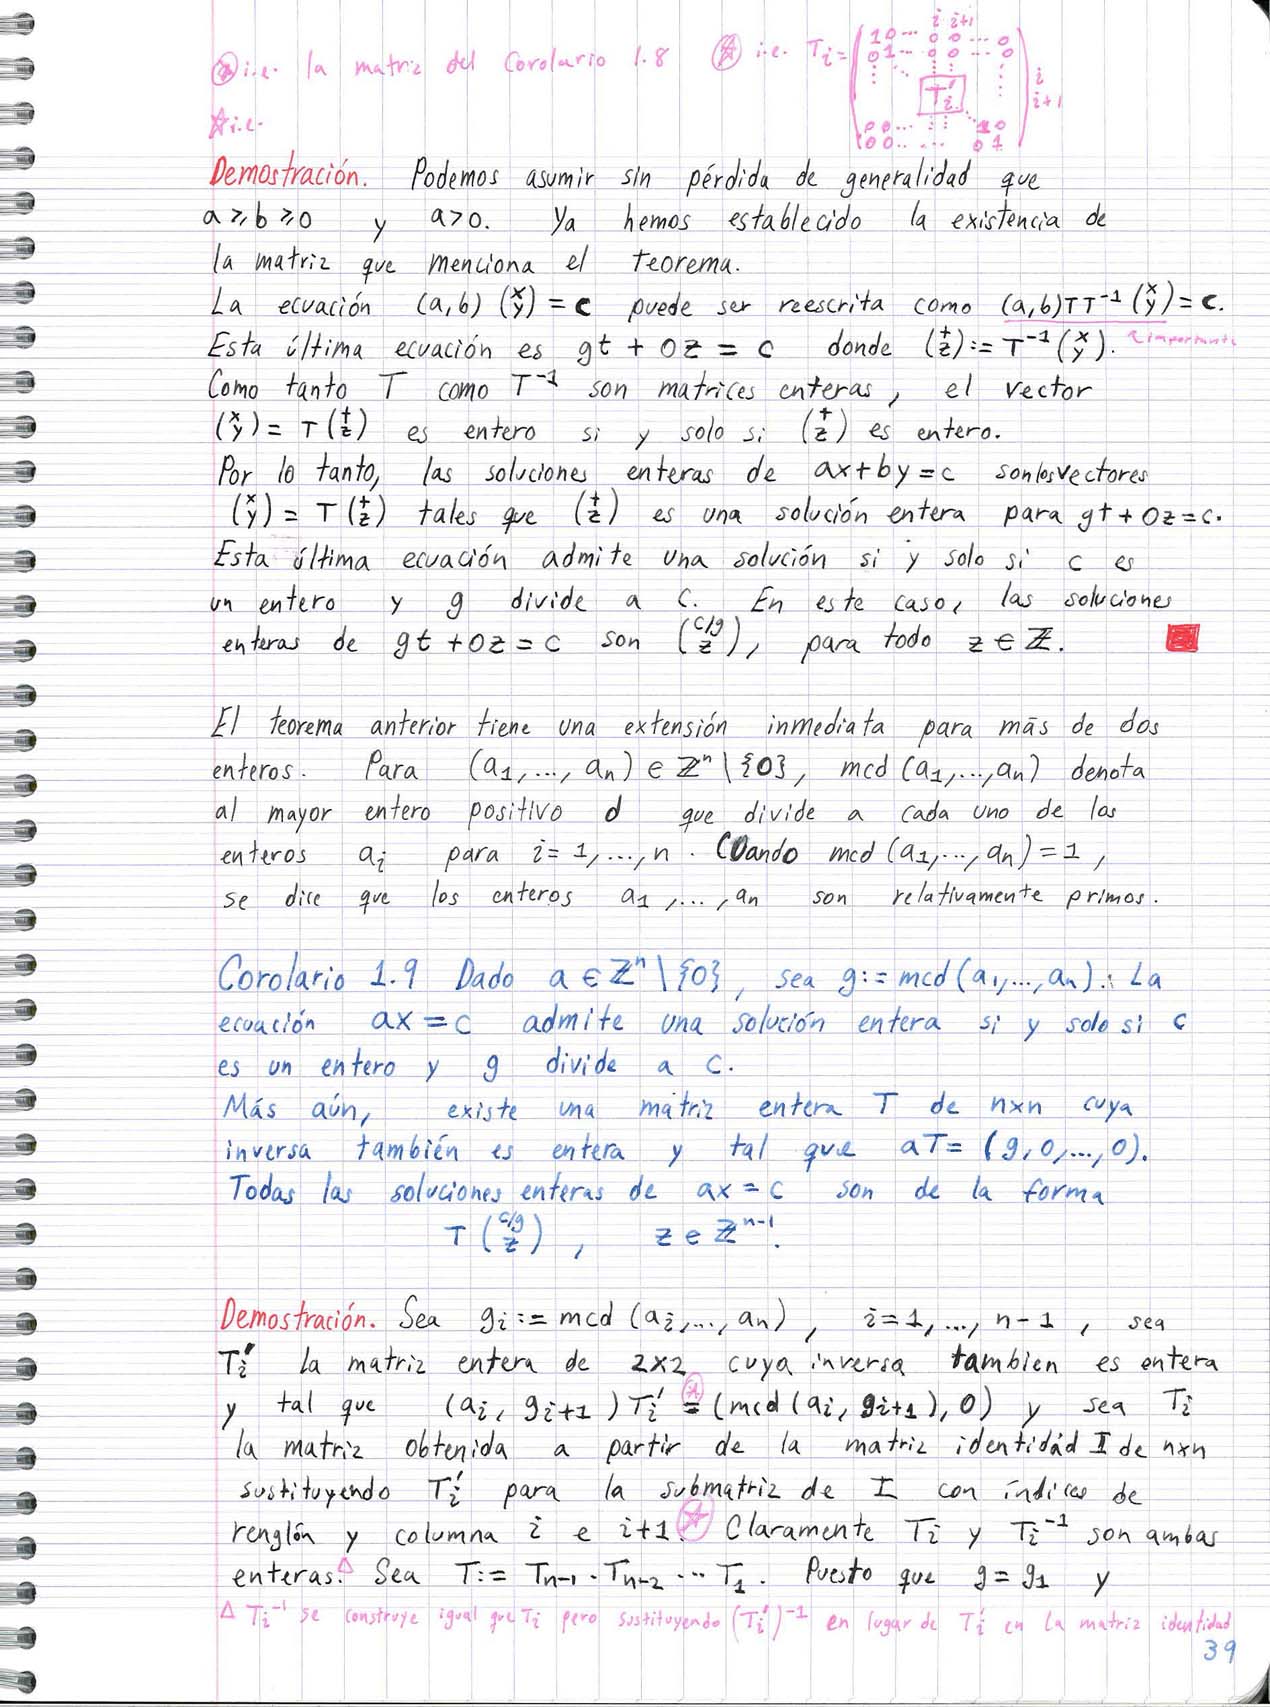 i.e. la matriz del Corolario 1.8   ☆ i.e. Tᵢ = ( 1 0 ⋯ 0 0 ⋯ 0 / 0 1 ⋯ 0 0 ⋯ 0 / ⋮ Tᵢ′ ⋮ / 0 0 ⋯ 1 0 / 0 0 ⋯ 0 1 ) i i+1 i i+1
☆ i.e.
Demostración. Podemos asumir sin pérdida de generalidad que
a ≥ b ≥ 0 y a > 0. Ya hemos establecido la existencia de
la matriz que menciona el teorema.
La ecuación (a, b) (x y) = c puede ser reescrita como (a, b)TT⁻¹ (x y) = c.
Esta última ecuación es gt + 0z = c donde (t z) := T⁻¹ (x y). ↖ importante
Como tanto T como T⁻¹ son matrices enteras, el vector
(x y) = T (t z) es entero si y solo si (t z) es entero.
Por lo tanto, las soluciones enteras de ax + by = c son los vectores
(x y) = T (t z) tales que (t z) es una solución entera para gt + 0z = c.
Esta última ecuación admite una solución si y solo si c es
un entero y g divide a c. En este caso, las soluciones
enteras de gt + 0z = c son (c/g z), para todo z ∈ ℤ. ■
El teorema anterior tiene una extensión inmediata para más de dos
enteros. Para (a₁, ..., aₙ) ∈ ℤⁿ \ {0}, mcd (a₁, ..., aₙ) denota
al mayor entero positivo d que divide a cada uno de los
enteros aᵢ para i = 1, ..., n. Cuando mcd (a₁, ..., aₙ) = 1,
se dice que los enteros a₁, ..., aₙ son relativamente primos.
Corolario 1.9 Dado a ∈ ℤⁿ \ {0}, sea g := mcd (a₁, ..., aₙ). La
ecuación ax = c admite una solución entera si y solo si c
es un entero y g divide a c.
Más aún, existe una matriz entera T de n×n cuya
inversa también es entera y tal que aT = (g, 0, ..., 0).
Todas las soluciones enteras de ax = c son de la forma
T (c/g z), z ∈ ℤⁿ⁻¹.
Demostración. Sea gᵢ := mcd (aᵢ, ..., aₙ), i = 1, ..., n-1, sea
Tᵢ′ la matriz entera de 2×2 cuya inversa tambien es entera
y tal que (aᵢ, gᵢ₊₁) Tᵢ′ = (mcd (aᵢ, gᵢ₊₁), 0) y sea Tᵢ
la matriz obtenida a partir de la matriz identidad I de n×n
sustituyendo Tᵢ′ para la submatriz de I con índices de
renglón y columna i e i+1. ☆ Claramente Tᵢ y Tᵢ⁻¹ son ambas
enteras. △ Sea T := Tₙ₋₁ · Tₙ₋₂ ⋯ T₁. Puesto que g = g₁ y
△ Tᵢ⁻¹ se construye igual que Tᵢ pero sustituyendo (Tᵢ′)⁻¹ en lugar de Tᵢ′ en la matriz identidad
39